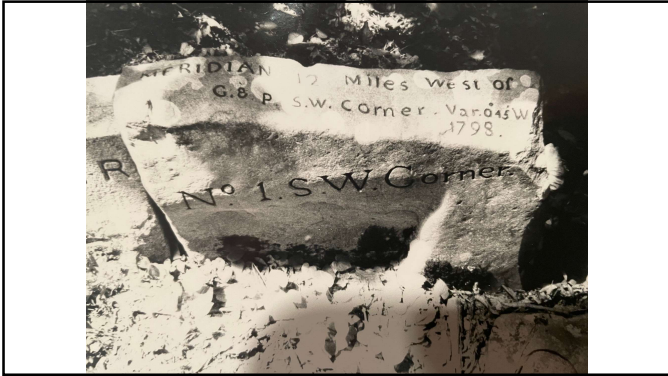 MERIDIAN 12 Miles West of
G. & P. S.W. Corner. Var. 0°45 W
1798.
R
No 1. S.W. Corner.